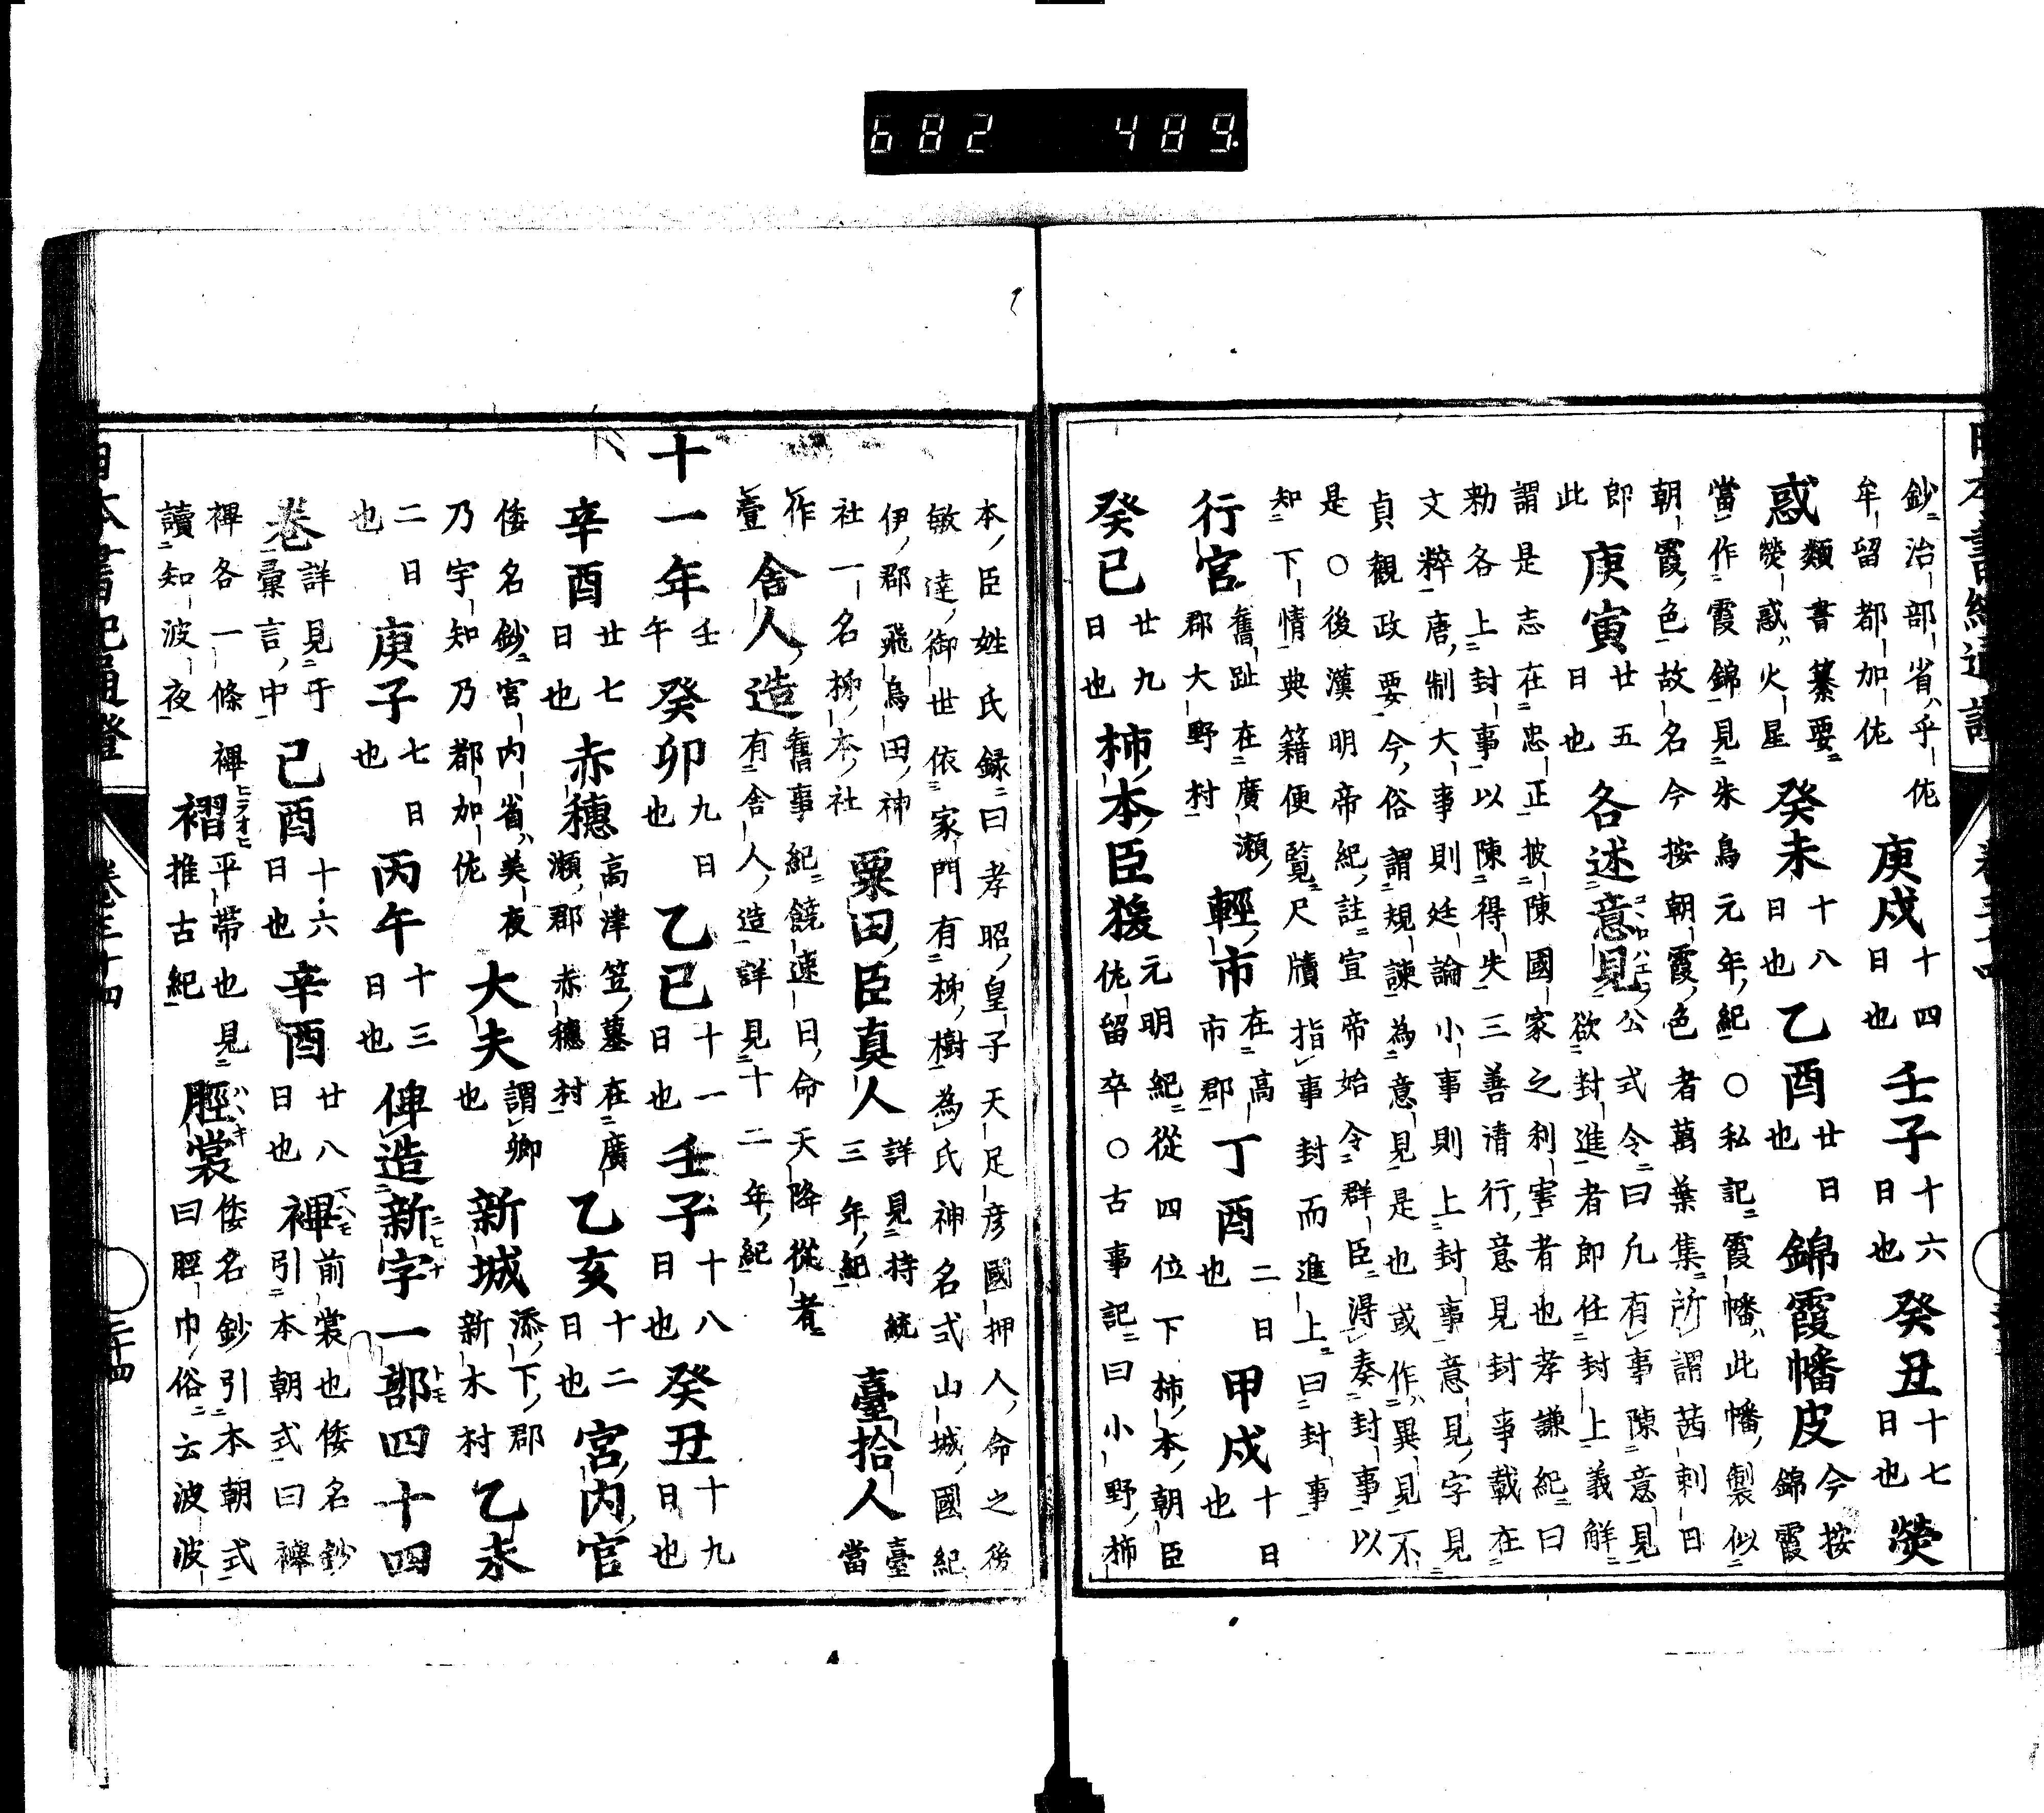 682 489.
鈔治部省乎佐
牟留都加佐
庚戌
十四
日也
壬子
十六
日也
癸丑
十七
日也
熒
惑
類書纂要
熒惑火星
癸未
十八
日也
乙酉
廿日
也
錦霞幡皮
今按
錦霞
當作霞錦見朱鳥元年紀○私記霞幡此幡製似
朝霞色故名今按朝霞色者萬葉集所謂茜刺日
此
庚寅
廿五
日也
各述意見
コヽロハエヲ
公式令曰凡有事陳意見
欲封進者即任封上義解
謂是志在忠正披陳國家之利害者也孝謙紀曰
勅各上封事以陳得失三善清行意見封事載在
文粹唐制大事則廷論小事則上封事意見字見
貞觀政要今俗謂規諫為意見是也或作異見不
是○後漢明帝紀註宣帝始令群臣得奏封事以
知下情典籍便覧尺牘指事封而進上曰封事
行官
舊趾在廣瀬
郡大野村
輕市
在高
市郡
丁酉
二日
也
甲戌
十日
也
癸巳
廿九
日也
柿本臣猨
元明紀從四位下柿本朝臣
佐留卒○古事記曰小野柿
本臣姓氏録曰孝昭皇子天足彦國押人命之後
敏達御世依家門有柿樹為氏神名式山城國紀
伊郡飛鳥田神
社一名柿本社
粟田臣真人
詳見持統
三年紀
臺拾人
臺
當
作
壹
舍人造
舊事紀饒速日命天降從者
有舎人造詳見十二年紀
十一年
壬
午
癸卯
九日
也
乙巳
十一
日也
壬子
十八
日也
癸丑
十九
日也
辛酉
廿七
日也
赤穗
高津笠墓在廣
瀬郡赤穗村
乙亥
十二
日也
宮内官
倭名鈔宮内省美夜
乃宇知乃都加佐
大夫
謂卿
也
新城
添下郡
新木村
乙未
二日
也
庚子
七日
也
丙午
十三
日也
俾造新字一部四十四
ニヒナ
トモ
卷
詳見于
彙言中
己酉
十六
日也
辛酉
廿八
日也
褌
前裳也倭名鈔
引本朝式曰褌
褌各一條
褌
ヒラオヒ
褶
平帶也見
推古紀
脛裳
ハヽキ
倭名鈔引本朝式
曰脛巾俗云波波
讀知波夜
日本書紀通證
卷三十四
二十四